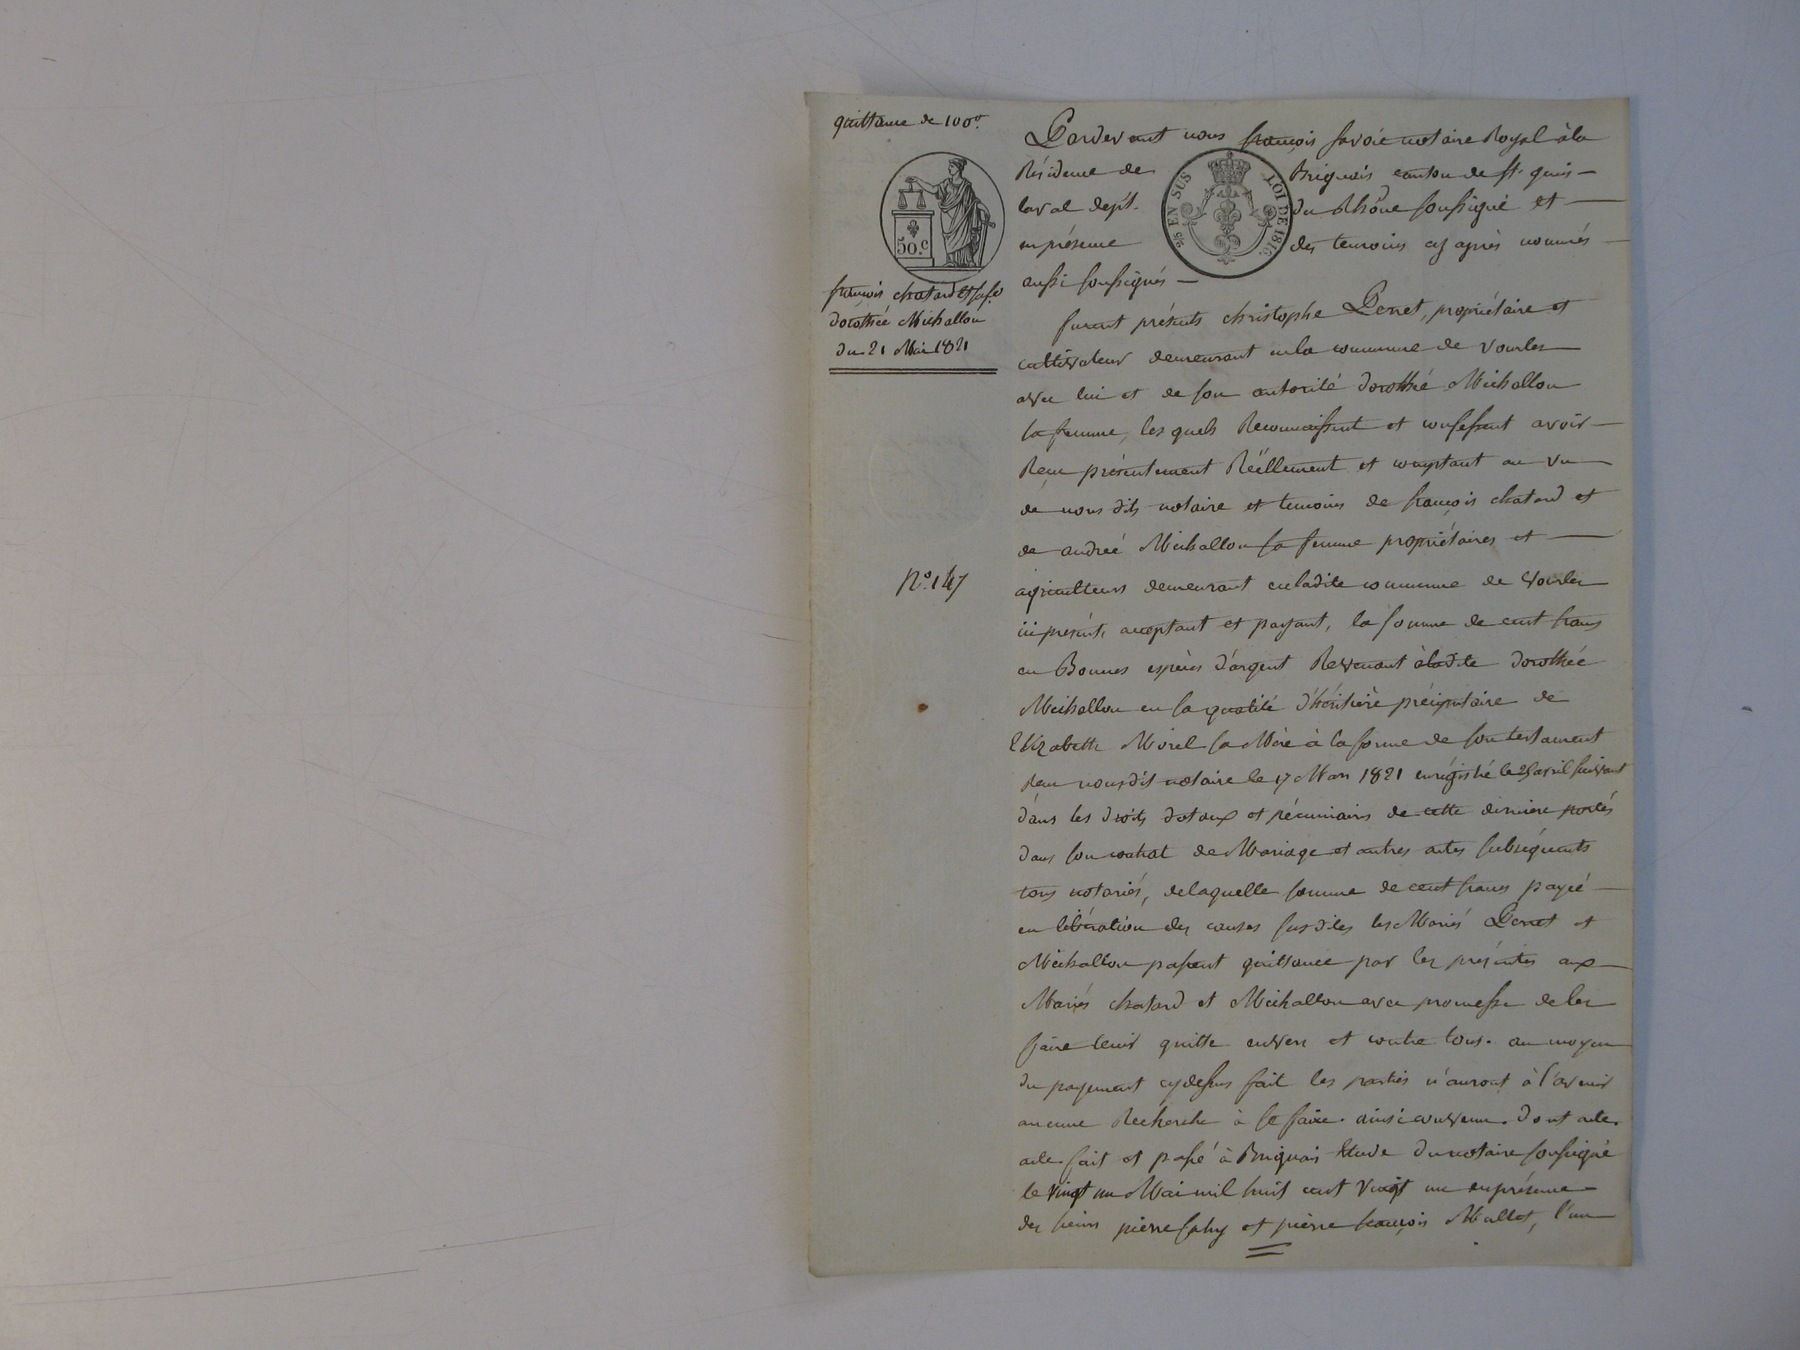 quittance de 100f.
50.c
françois chatard et sa fe
dorothée Michallon
du 21 Mai 1821
N.º 147
Pardevant nous françois savoie notaire Royal à la
Résidence de Brignais canton de st. genis
laval dépt. du Rhône soussigné et
en présence des temoins cy après nommés
aussi soussignés
EN SUS LOI DE 1816
furent présents christophe Perret, propriétaire et
cultivateur demeurant en la commune de vourles
avec lui et de son autorité dorothée Michallon
sa femme, les quels Reconnaissent et confessent avoir
Reçu présentement Réellement et comptant au vu
de nous dits notaire et temoins de françois chatard et
de andreé Michallon sa femme propriétaires et
agriculteurs demeurant en ladite commune de Vourles
ici présents, acceptant et payant, la somme de cent francs
en Bonnes espèces d'argent Revenant à ladite dorothée
Michallon en sa qualité d'héritière préciputaire de
Elizabeth Morel sa Mère à la forme de son testament
Reçu nous dit notaire le 17 Mars 1821 enrégistré le 25 avril suivant
dans les droits dotaux et pécuniaires de cette dernière portés
dans son contrat de Mariage et autres actes subséquents
tous notariés, de laquelle somme de cent francs payée
en libération des causes susdites les Mariés Perret et
Michallon passent quittance par les présentes aux
Mariés chatard et Michallon avec promesse de les
faire tenir quitte envers et contre tous. au moyen
du payement cy dessus fait les parties n'auront à l'avenir
aucune Recherche à se faire. ainsi convenu. dont acte.
acte fait et passé à Brignais Etude du notaire soussigné
le vingt un Mai mil huit cent vingt un en présence
des sieurs pierre et pierre françois Mallet, l'un